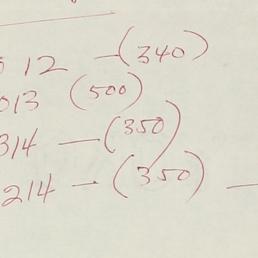 12 - (340)
013 (500)
314 - (350)
214 - (350) -